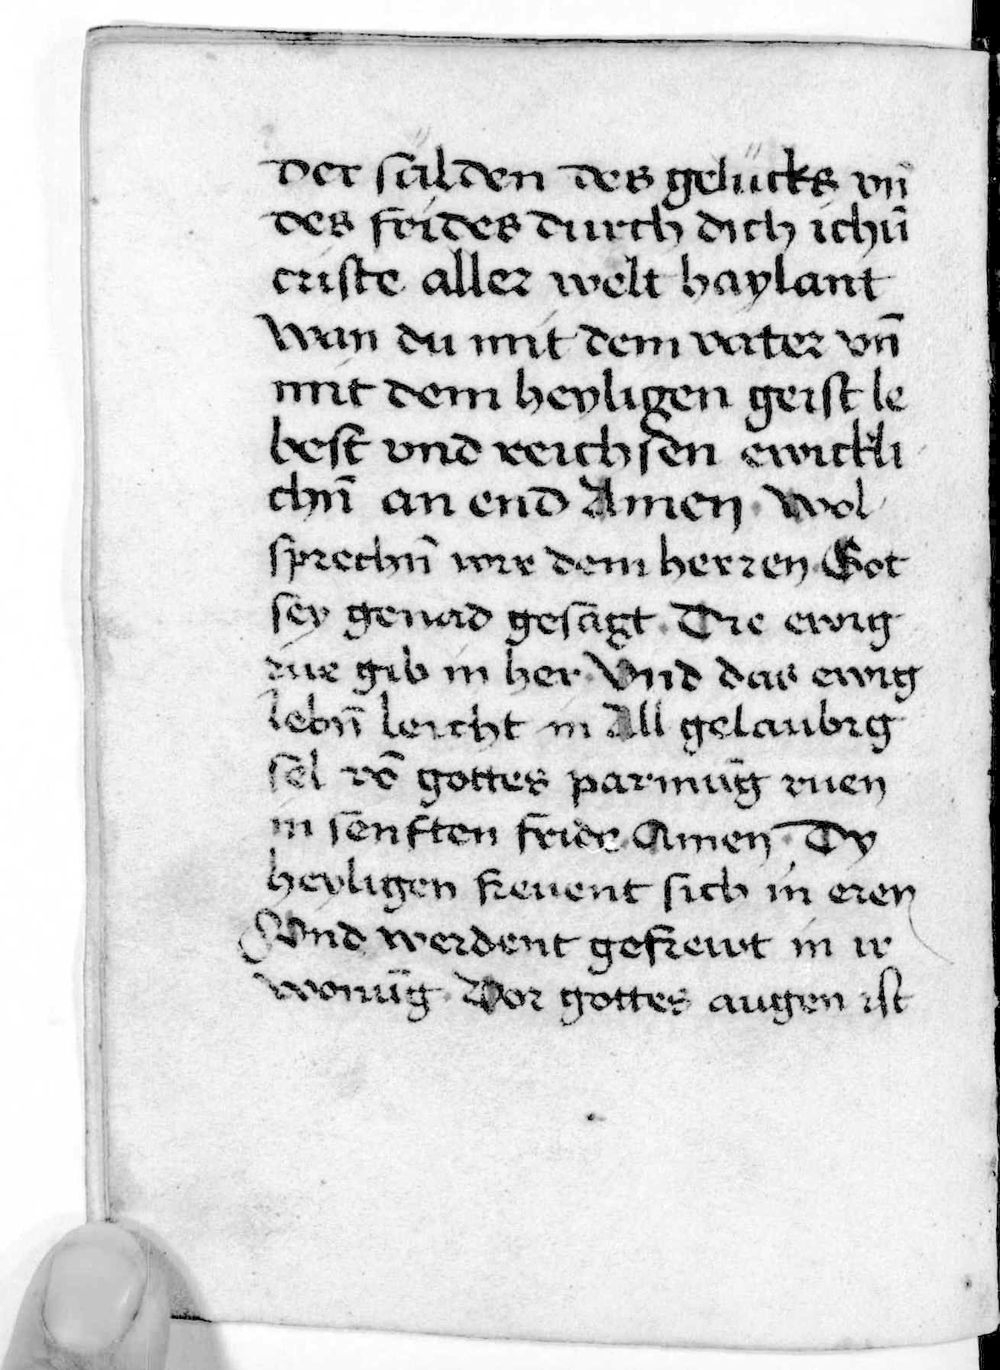 der sälden des gelücks vn̄
des frides durch dich ichū
criste aller welt haylant
Wan du mit dem vater vn̄
mit dem heyligen geist le
best vnd reichsen ewickli
chn̄ an end Amen · Wol
sprechn̄ wir dem herren · Got
sey genad gesagt · Die ewig
rue gib in her · Vnd das ewig
lebn̄ leicht in All gelaubig
sel võ gottes parmūg ruen
in senften fride Amen · Dy
heyligen frewent sich in eren
Vnd werdent gefrewt in ir
wonūg · Vor gottes augen ist